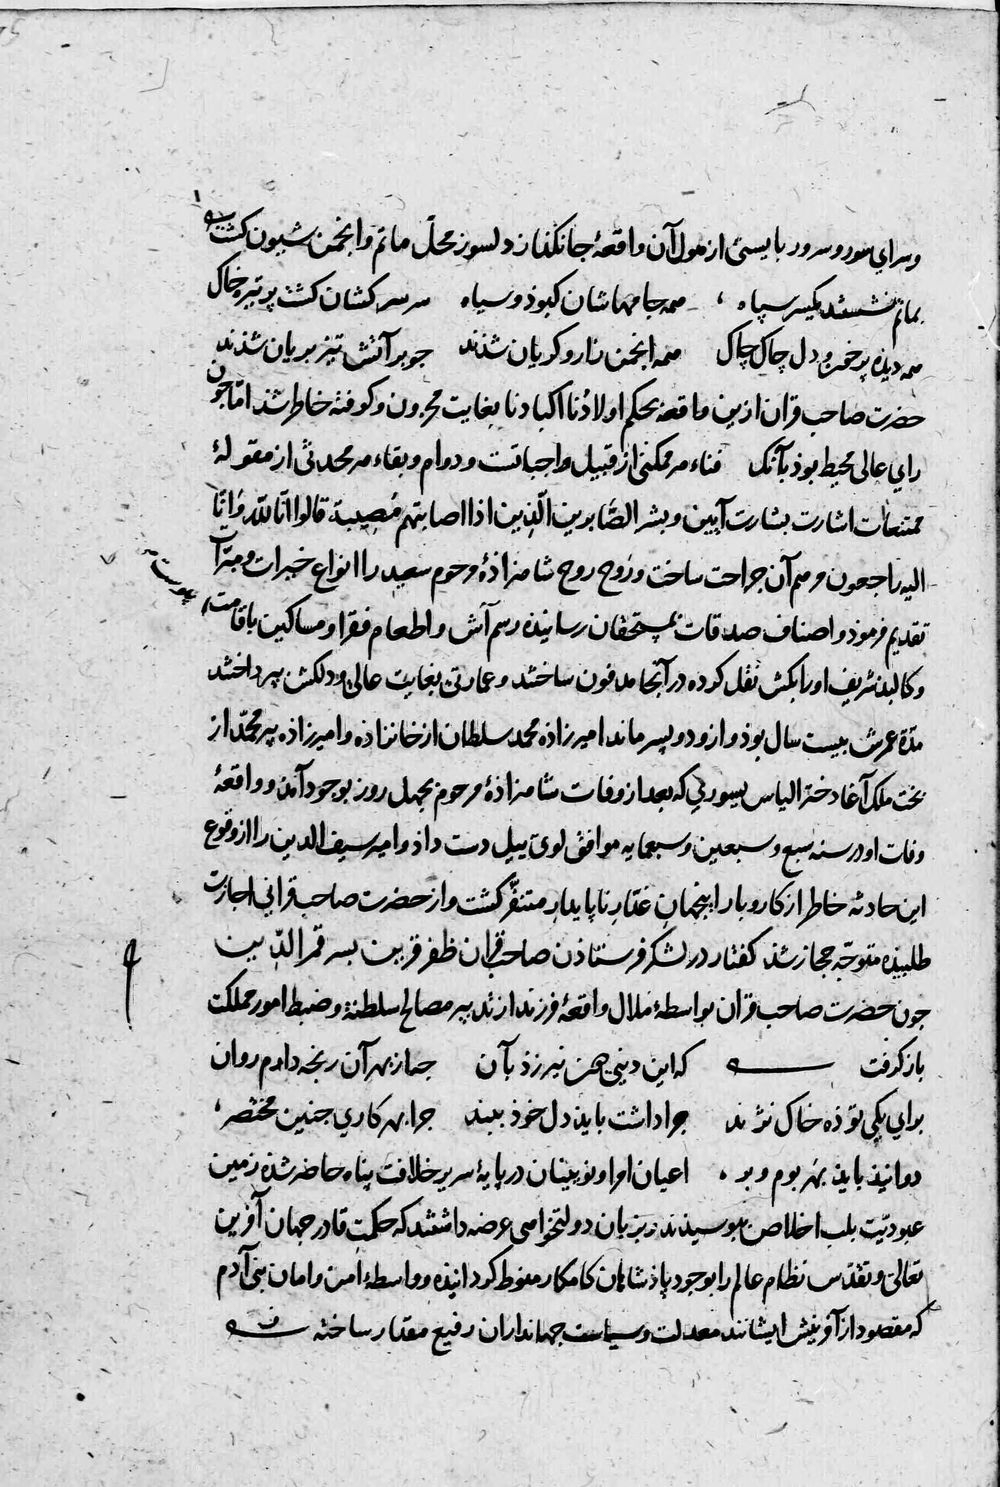 وسرای سور و سرور بایستی از هول آن واقعهٔ جانگداز دلسوز محلّ ماتم و انجمن شیون کشت
بماتم نشستند یکسر سپاه همه جامهاشان کبوذ و سیاه سر سرکشان کشت پر تیره خاک
همه دیذه پر خون و دل چاک چاک همه انجمن زار و کریان شذند جو بر آتش تیز بریان شذند
حضرت صاحب قران ازین واقعه بحکم اولادنا اکبادنا بغایت محزون و کوفته خاطر شذ امّا جون
رای عالی محیط بوذ بآنک فناء هر ممکنی از قبیل واجباتست و دوام و بقاء هر محدثی از مقولهٔ
ممتنعات اشارت بشارت آیین و بشر الصّابرین الّذین اذا اصابتهم مُصیبة قالوا انّا للّه و انّا
الیه راجعون مرهم آن جراحت ساخت و روح روح شاهزاذهٔ مرحوم سعید را انواع خیرات و مبرّات
تقدیم فرموذ و اصناف صدقات بمستحقان رسانیذه رسم آش و اطعام فقرا و مساکین باقامت
پیوست
و کالبد شریف او را بکش نقل کرده در آنجا مدفون ساختند و عمارتی بغایت عالی و دلکش بپرداختند
مدّة عمرش بیست سال بوذ و ازو دو پسر ماند امیرزاذه محمد سلطان از خانزاذه و امیرزاذه پیر محمّد از
بخت ملک آغا دختر الیاس یسوری که بعد از وفات شاهزاذهٔ مرحوم بچهل روز بوجود آمذ و واقعهٔ
وفات او در سنه سبع و سبعین و سبعمایه موافق لوی ییل دست داذ و امیر سیف الدین را از وقوع
این حادثه خاطر از کار و بار اینجهان غدّار ناپایدار متنفّر کشت و از حضرت صاحب قرانی اجازت
طلبیذه متوجّه حجاز شذ کفتار در لشکر فرستاذن صاحب قران ظفر قرین بسر قمر الدّین
جون حضرت صاحب قران بواسطهٔ ملال واقعهٔ فرزند از تدبیر مصالح سلطنة و ضبط امور مملکت
باز کرفت که این دنیی من نیرزد بآن جه از بهر آن رنجه دارم روان
برای یکی توذه خاک نژند جرا داشت بایذ دل خوذ ببند جرا بهر کاری جنین مختصر
دوانیذ بایذ بهر بوم و بر اعیان امرا و نویینان در پایهٔ سریر خلافت پناه حاضر شذه زمین
عبودیّت بلب اخلاص بوسیدند و بزبان دولتخواهی عرضه داشتند که حکمت قادر جهان آفرین
تعالی و تقدّس نظام عالم را بوجود پاذشاهان کامکار منوط کردانیذه و واسطهٔ امن و امان بنی آدم
که مقصود از آفرینش ایشانند معدلت و سیاست جهانداران رفیع مقدار ساخته